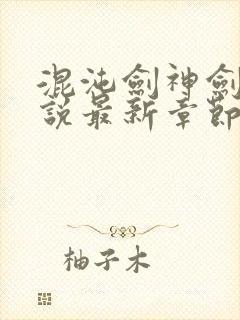 混沌劍神劍
說最新章節
柚子木